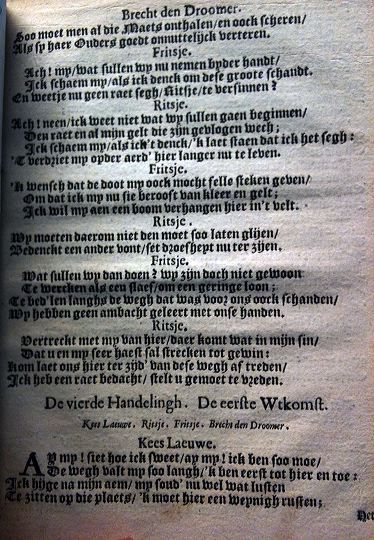 Brecht den Droomer.
Soo moet men al die Maets onthalen/en oock scheren/
Als sy haer Ouders goedt onnuttelijck verteren.
Fritsje.
Ach! my/wat sullen wy nu nemen byder handt/
Ick schaem my/als ick denck om dese groote schandt.
En weetje nu geen raet segh/Ritsje/te versinnen?
Ritsje.
Ach! neen/ick weet niet wat wy sullen gaen beginnen/
Den raet en al mijn gelt die zijn gevlogen wech;
Ick schaem my/als ick't denck/'k laet staen dat ick het segh:
'T verdriet my opder aerd' hier langer nu te leven.
Fritsje.
'k wensch dat de doot my oock mocht felle steken geven/
Om dat ick my nu sie berooft van kleer en gelt;
Ick wil my aen een boom verhangen hier in't velt.
Ritsje.
Wy moeten daerom niet den moet soo laten glijen/
Bedenckt een ander vont/set droefheyt nu ter zijen.
Fritsje.
Wat sullen wy dan doen? wy zijn doch niet gewoon
Te wercken als een slaef/om een geringe loon;
Te bed'len langhs de wegh dat was voor ons oock schanden/
Wy hebben geen ambacht geleert met onse handen.
Ritsje.
Vertreckt met my van hier/daer komt wat in mijn sin/
Dat u en my seer haest sal strecken tot gewin:
Kom laet ons hier ter zijd' van dese wegh af treden/
Ick heb een raet bedacht/ stelt u gemoet te vreden.
De vierde Handelingh. De eerste Wtkomst.
Kees Laeuwe, Ritsje, Fritsje, Brecht den Droomer.
Kees Laeuwe.
Ay my! siet hoe ick sweet/ay my! ick ben soo moe/
De wegh valt my soo langh/'k ben eerst tot hier en toe:
Ick hijge na mijn aem/ my soud' nu wel wat lusten
Te zitten op die plaets/ 'k moet hier een weynigh rusten;
Het